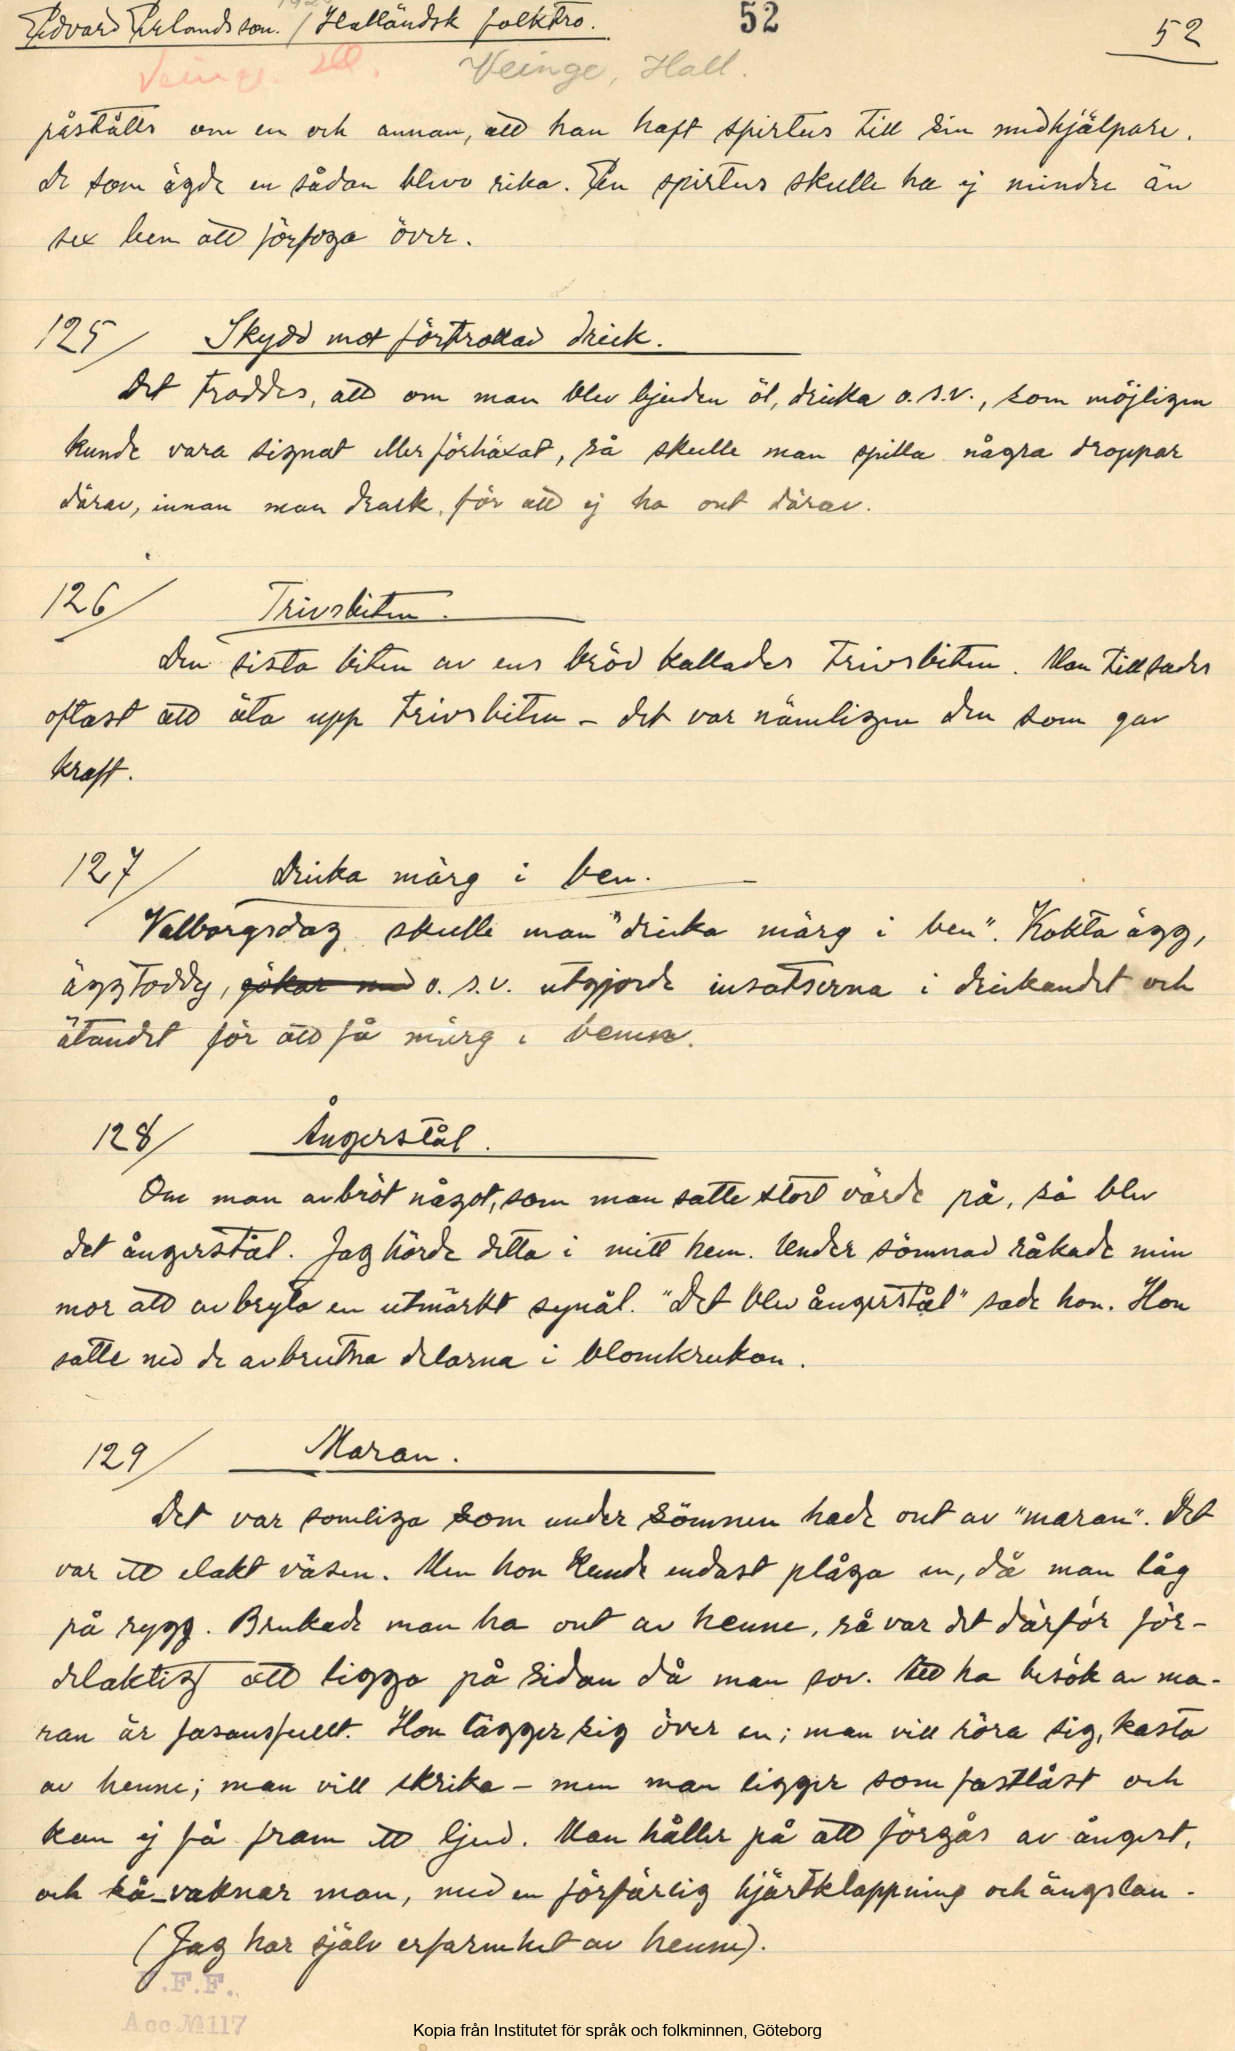 Edvard Erlandsson. / Halländsk folktro.
52
52
Veinge. Hll.
Veinge, Hall.
påståtts om en och annan, att han haft spirtus till sin medhjälpare.
De som ägde en sådan blevo rika. En spirtus skulle ha ej mindre än
sex ben att förfoga över.
125/ Skydd mot förtrollad drick.
Det troddes, att om man blev bjuden öl, dricka o.s.v., som möjligen
kunde vara signat eller förhäxat, så skulle man spilla några droppar
därav, innan man drack, för att ej ha ont därav.
126/ Trivsbiten.
Den sista biten av ens bröd kallades trivsbiten. Man tillsades
oftast att äta upp trivsbiten – det var nämligen den som gav
kraft.
127/ Dricka märg i ben.
Valborgsdag skulle man "dricka märg i ben". Kokta ägg,
äggtoddy, gökar med o.s.v. utgjorde insatserna i drickandet och
ätandet för att få märg i benen.
128/ Ångerstål.
Om man avbröt något, som man satte stort värde på, så blev
det ångerstål. Jag hörde detta i mitt hem. Under sömnad råkade min
mor att avbryta en utmärkt synål. "Det blev ångerstål" sade hon. Hon
satte ned de avbrutna delarna i blomkrukan.
129/ Maran.
Det var somliga som under sömnen hade ont av "maran". Det
var ett elakt väsen. Men hon kunde endast plåga en, då man låg
på rygg. Brukade man ha ont av henne, så var det därför för-
delaktigt att ligga på sidan då man sov. Att ha besök av ma-
ran är fasansfullt. Hon lägger sig över en; man vill röra sig, kasta
av henne; man vill skrika – men man ligger som fastlåst och
kan ej få fram ett ljud. Man håller på att förgås av ångest,
och så vaknar man, med en förfärlig hjärtklappning och ängslan.
(Jag har själv erfarenhet av henne).
.F.F.
Acc.№117
Kopia från Institutet för språk och folkminnen, Göteborg